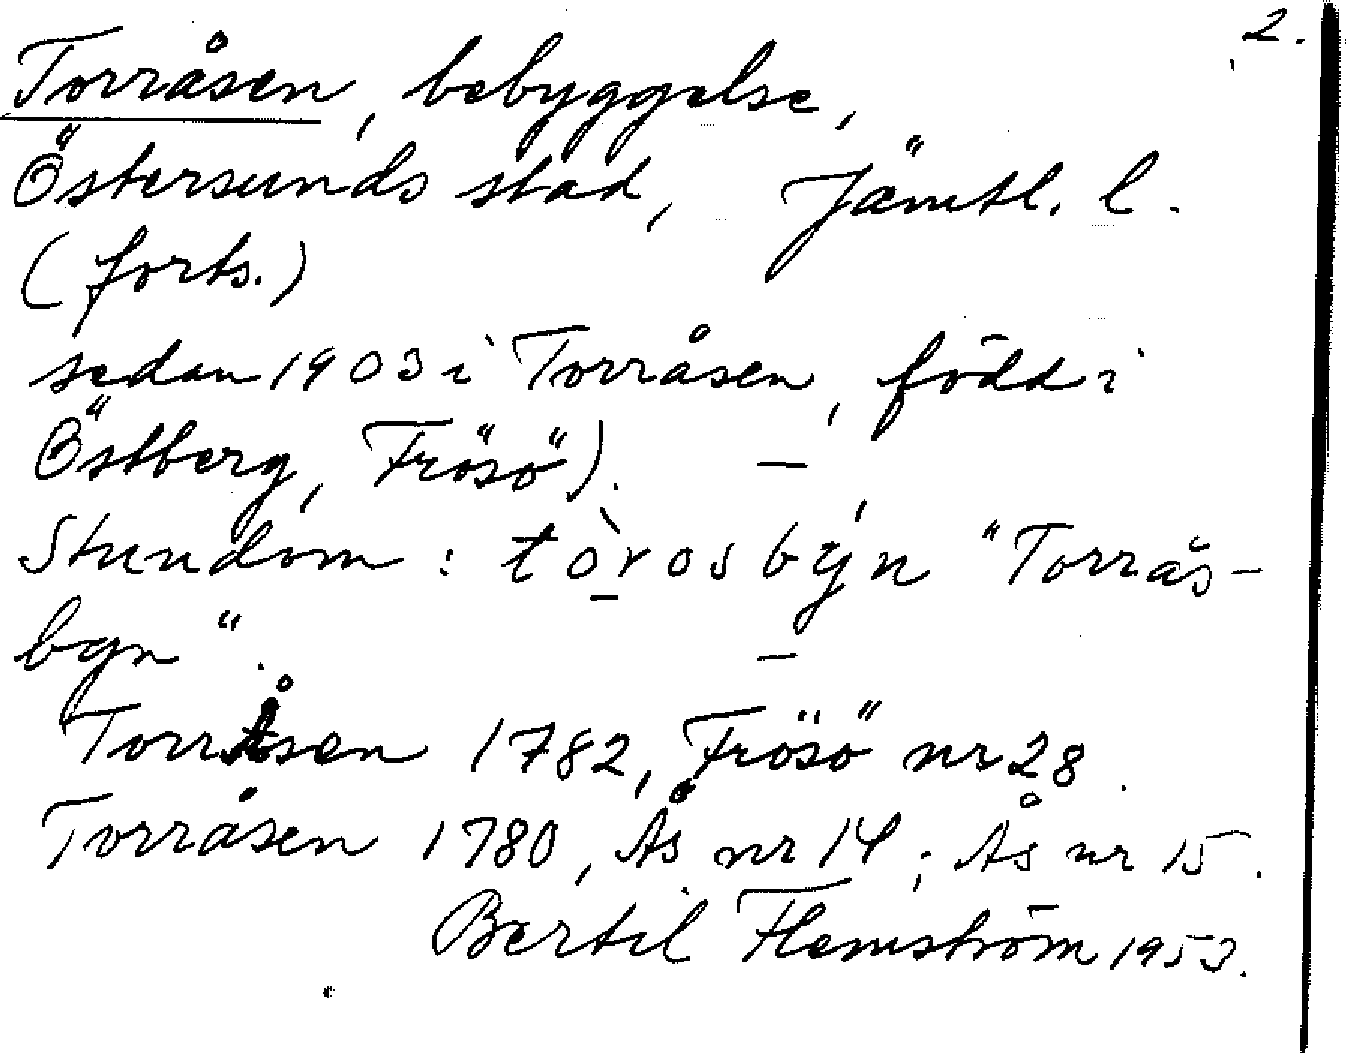 2.
Torråsen, bebyggelse,
Östersunds stad, Jämtl. l.
(forts.)
sedan 1903 i Torråsen, född i
Östberg, Frösö). —
Stundom: tòrosbýn "Torrås-
byn". —
Torråsen 1782, Frösö nr 28.
Torråsen 1780, Ås nr 14; Ås nr 15.
Bertil Flemström 1953.